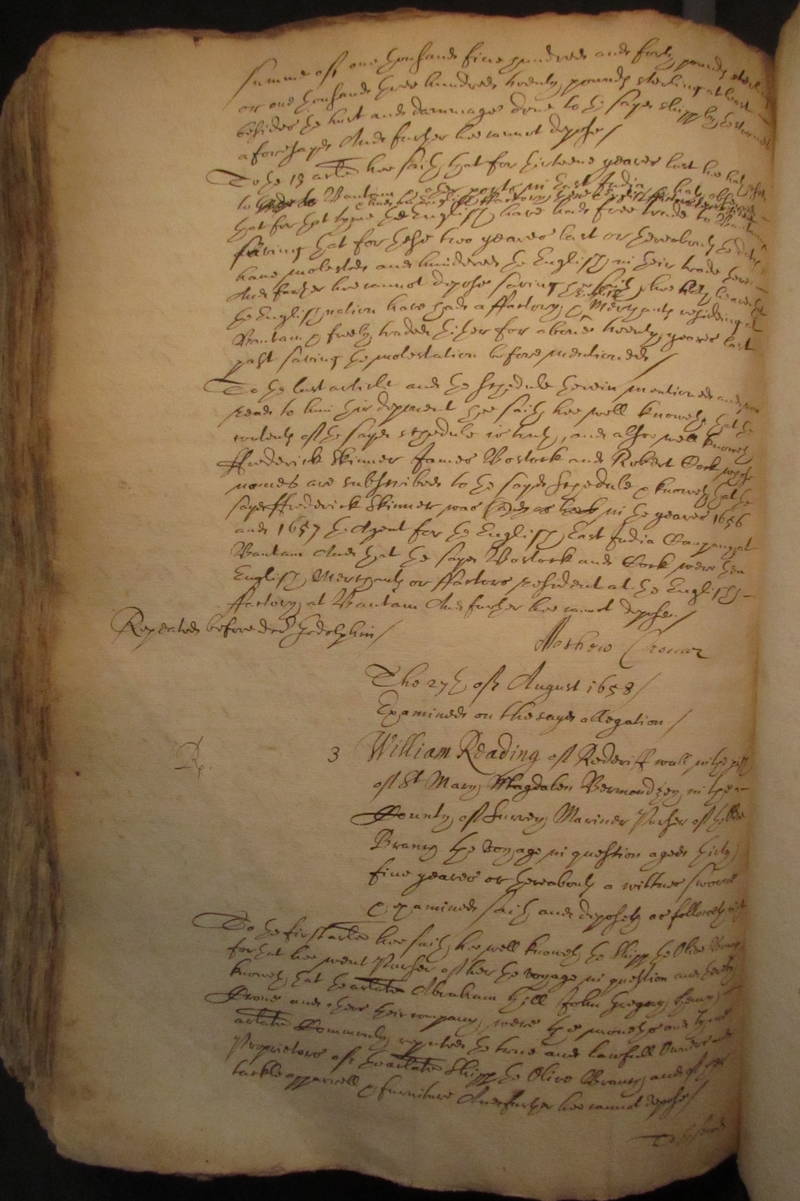 summe of one thousand five hundred and forty pounds sterling
or one thousand three hundred twenty pounds sterling at least
besides the hurt and dammage done to the sayd shipp by the
aforesayd And further hee cannot depose /
To the 13 arlé hee saith that for thirteene yeares last hee hath
to Bantam port in East India
that for that tyme the English have had free trade to Bantam
saving that for these two yeares last or thereabouts the dutch
have molested and hindered the English in their trade there
And further hee cannot depose saving hee saith hee hath heard that
the English nation have had a ffactory & Merchants residing at
Bantam & freely traded thither for above twenty yeares last
past saving the molestation before mentioned /
To the last article and the schedule therein mentioned and now
read to him this deponent hee saith hee well knoweth that the
contents of the sayd schedule is true, and alsoe well knoweth
ffrederick Skinner James Bostock and Robert Cock whose
names are subscribed to the sayd schedule & knoweth that the
sayd ffrederick Skinner was in the yeares 1656
and 1657 the Agent for the English East India Company at
Bantam And that the sayd Bostock and Cock were then
English Merchants or ffactors resident at the English
ffactory at Bantam And further hee cannot depose /
Repeated before doctor Godolphin /
Mathew
The 27th of August 1658 /
Examined on the sayd allegation /
Rp.
3 William Reading of Rederiff wall in the pish
of St Mary Magdalen Bermondsey in the
County of Surrey Mariner Purser of the Olive
Branch the voyage in question aged thirty
five yeares or thereabouts a wittnes sworne
& examined saith and deposeth as followeth vizt
To the first arlé hee saith hee well knoweth the shipp the Olive Branch
for that hee went Purser of her the voyage in question and hereby
knoweth that the arlate Abraham Hill John Gregory Henry
and there company were the moneths and tyme
arlate Commonly reputed the true and lawfull Owners and
Proprietors of the arlate shipp the Olive Branch and of her
tackle apparrell & furniture And further hee cannot depose /
To the second